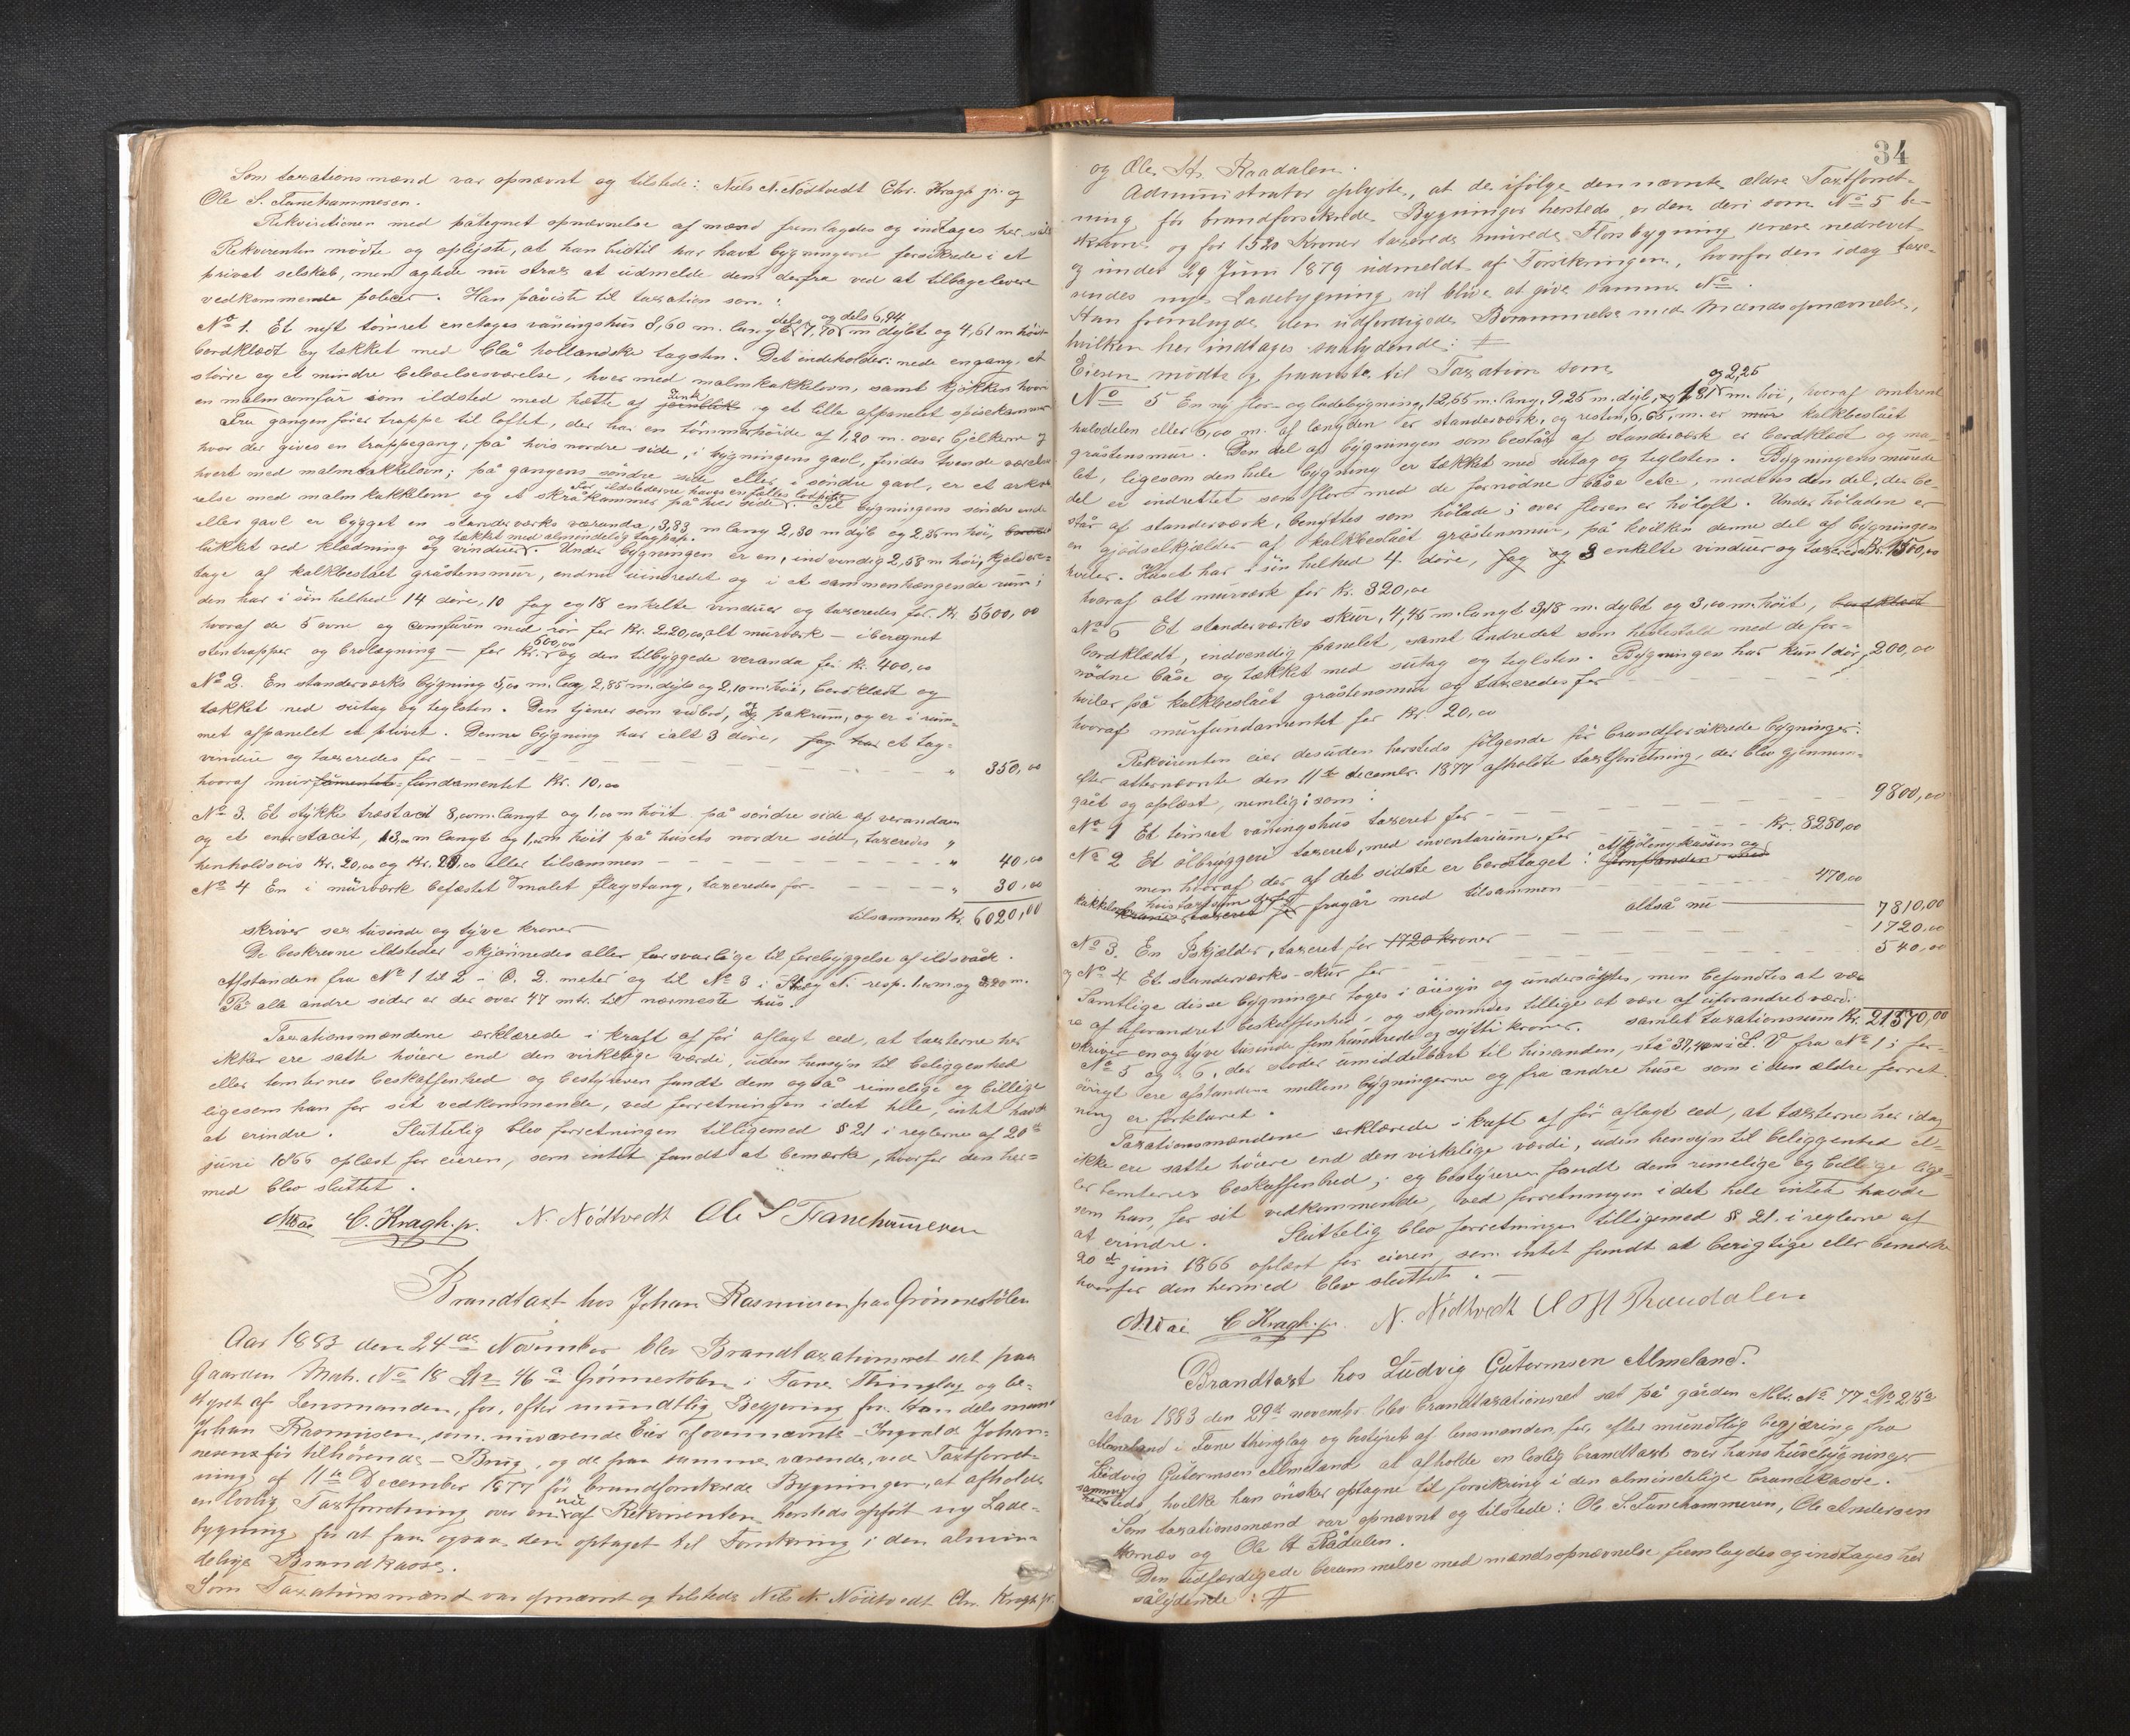 Som taxationsmænd var opnævnt og tilstede: Niels N. Nödtvedt Chr. Kragh jr. og
Ole S. Fanehammeren.
Rekvisitionen med påtegnet opnævnelse af mænd fremlagdes og indtages her
Rekvirenten mödte og oplyste, at han hidtil har havt bygningerne forsikrede i et
privat selskab, men agtede nu strax at udmelde dem derfra ved at tilbagelevere
vedkommende policer. Han påviste til taxation som:
No 1. Et nyt tömret enetages våningshus 8,60 m. lang dels 7,70 og dels 6,94 m dybt og 4,61 m höit
bordklædt og tækket med blå hollandske tagsten. Det indeholder: nede en gang, et
större og et mindre beboelsesværelse, hver med malmkakkelovn, samt kjökken hvori
en malmcomfür som ildsted med hætte af zink og et lille afpanelet spisekammer
Fra gangen förer trappe til loftet, der har en tömmerhöide af 1,20 m. over bjelkerne og
hvor der gives en trappegang, på hvis nordre side, i bygningens gavl, findes tvende værelser
hvert med malmkakkelovn; på gangens söndre side eller i söndre gavl, er et
relse med malmkakkelovn og et skråkammer på hver side. For ildstederne haves en fælles Til bygningens söndre ende
eller gavl er bygget en standerværks væranda, 3,83 m lang 2,30 m dyb og 2,35 m höi,
lukket ved klædning og vinduer og takket med almindelig tagpap. Under bygningen er en, indvendig 2,58 m höi, kjelder-
tage af kalkbeslået gråstensmur, endnu uindredet og i et sammenhængende rum;
den har i sin helhed 14 döre, 10 fag og 18 enkelte vinduer og taxeredes for Kr. 5600,00
hvoraf de 5 ovne og comfuren med rör for Kr. 220,00, alt murværk – iberegnet
stentrapper og brolægning – for Kr. 600,00 og den tilbyggede veranda for Kr. 400,00
No 2. En standerværks bygning 5,00 m. lang 2,85 m. dyb og 2,10 m. höi, bordklædt og
tækket ned sutag og teglsten. Den tjener som vedbod, og pakrum, og er i rum-
met afpanelet et privet. Denne bygning har ialt 3 döre, fag har et tag-
vindue og taxeredes for – – – „ 350,00
hvoraf mur fundamentet Kr. 10,00
No 3. Et stykke træstacit 8,00 m. langt og 1,00 m höit på söndre side af verandaen
og et andet stacit, 13,00 m langt og 1,00 m höit på husets nordre side, taxeredes „
henholdsvis Kr. 20,00 og Kr. 20,00 eller tilsammen – – – „ 40,00
No 4 En i murværk befæstet & malet flagstang, taxeredes for – – „ 30,00
tilsammen Kr. 6020,00
skriver sex tusinde og tyve kroner
De beskrevne ildsteder skjönnedes aller forsvarlige til forebyggelse af ildsvåde.
Afstanden fra No 1 til 2 – Ö. 2. meter og til No 3 i S. og N. resp. 1,00 m. og 2,20 m.
På alle andre sider er der over 47 mtr. til nærmeste hus.
Taxationsmændene erklærede i kraft af för aflagt eed, at taxterne her
ikke ere satte höiere end den virkelige værdi, uden hensyn til beliggenhed
eller tomternes beskaffenhed og bestyreren fandt dem også rimelige og billige
ligesom han for sit vedkommende, ved forretningen i det hele, intet havde
at erindre. Sluttelig blev forretningen tilligemed § 21 i reglerne af 20de
juni 1866 oplæst for eieren, som intet fandt at bemærke, hvorfor den her-
med blev sluttet.
C. Kragh. jr. N. Nödtvedt Ole S Fanehammeren
Brandtaxt hos Johan Rasmussen paa Grönnestölen
Aar 1883 den 24de November blev Brandtaxationsret sat paa
Gaarden Matr. No 18 Lbr. 46a Grönnestölen i Fane Thinglag og be-
styret af Lensmanden, for, efter mundtlig Begjæring fra Handelsmand
Johan Rasmussen, som nuværende Eier af ovennævnte – Ingvald Johan-
nesens för tilhörende – Brug, og de paa samme værende, ved Taxtforret-
ning af 11te December 1877 för brandforsikrede Bygninger, at afholde
en lovlig Taxtforretning over en nu af Rekvirenten hersteds opfört ny Lade-
bygning for at faa ogsaa den optaget til Forsikring i den almin-
delige Brandkasse.
Som Taxationsmænd var opnævnt og tilstede Niels N. Nödtvedt Chr. Kragh jr.
34
og Ole H. Raadalen.
Administrator oplyste, at de ifölge den nævnte ældre Taxtforret-
ning för brandforsikrede Bygninger hersteds, er den deri som No 5 be-
skrevne og for 1520 Kroner taxerede murede Florsbygning senere nedrevet
og under 29 Juni 1879 udmeldt af Forsikringen, hvorfor den idag taxe-
rendes nye Ladebygning vil blive at give samme No.
Han fremlagde den udfærdigede Berammelse med Mændsopnævnelse,
hvilken her indtages saalydende: #
Eieren mödte og paaviste til Taxation som
No 5 En ny flor- og ladebygning, 12,65 m. lang, 9,25 m. dyb, og 2,25 m. höi, hvoraf omtrent
halvdelen eller 6,00 m. af længden er standerværk, og resten, 6,65, m. er mur kalkbeslået
gråstensmur. Den del af bygningen som består af standerværk er bordklædt og ma-
let, ligesom den hele bygning er tækket med sutag og teglsten. Bygningens murede
del er indrettet som flor med de fornödne båse etc., medens den del, der be-
står af standerværk, benyttes som hölade; over floren er höloft. Under höladen er
en gjödselkjælder af kalkbeslået gråstensmur, på hvilken denne del af bygningen
hviler. Huset har i sin helhed 4 döre, fag og 3 enkelte vinduer og taxeredes Kr. 1500,00
hvoraf alt murværk for Kr. 320,00
No 6 Et standerværks skur, 4,45 m. langt 3,18 m. dybt og 3,00 m. höit, bordklædt
bordklædt, indvendig panelet, samt indredet som hestestald med de for-
nödne båse og tækket med sutag og teglsten. Bygningen har kun 1 dör, 200,00
hviler på kalkbeslået gråstensmur og taxeredes for – – –
hvoraf murfundamentet for Kr. 20,00
Rekvirenten eier desuden hersteds fölgende för brandforsikrede bygninger:
efter atternævnte den 11te decembr. 1877 afholdte taxtforretning, der blev gjennem-
gået og oplæst, nemlig: som:
No 1 Et tömret våningshus taxeret for – – – 9800,00
No 2 Et ölbryggeri taxeret, med inventarium, for – – Kr. 8280,00
men hvoraf der af det sidste er borttaget: Afkjölingskassen og
fragår med tilsammen – – 470,00
altså nu – 7810,00
No 3. En Iskjælder, taxeret for 1720 kroner – – – 1720,00
og No 4 Et standerværks-skur for – – – 540,00
Samtlige disse bygninger toges i öiesyn og undersögtes, men befandtes at væ-
re af uforandret beskaffenhed, og skjönnedes tillige at være af uforandret værdi
samlet taxationssum Kr. 21570,00
skriver en og tyve tusinde fem hundrede og sytti kroner.
No 5 og 6, der stöder umiddelbart til hinanden, stå 37,40 m i S. V fra No 1; for-
övrigt ere afstandene mellem bygningerne og fra andre huse som i den ældre forret-
ning er forklaret.
Taxationsmændene erklærede i kraft af för aflagt eed, at taxterne her idag
ikke ere satte höiere end den virkelige værdi, uden hensyn til beliggenhed el-
ler tomternes beskaffenhed; og bestyreren fandt dem rimelige og billige lige-
som han, for sit vedkommende, ved forretningen i det hele intet havde
at erindre. Sluttelig blev forretningen tilligemed § 21. i reglerne af
20de juni 1866 oplæst for eieren, som intet fandt at berigtige eller bemærke
hvorfor den hermed blev sluttet. –
C Kragh. jr. N. Nödtvedt O H Raadalen
Brandtaxt hos Ludvig Gutormsen Almeland.
Aar 1883 den 29de novembr. blev brandtaxationsret sat på gården Mtr. No 77 Lbr. 215a
Almeland i Fane thinglag og bestyret af lensmanden for, efter mundtlig begjæring fra
Ludvig Gutormsen Almeland at afholde en lovlig brandtaxt over hans husebygninger
sammesteds, hvilke han önsker optagne til forsikring i den almindelige brandkasse.
Som taxationsmænd var opnævnt og tilstede: Ole S. Fanehammeren, Ole Andersen
Hornæs og Ole H. Rådalen.
Den udfærdigede berammelse med mændsopnævnelse fremlagdes og indtages her
sålydende: #